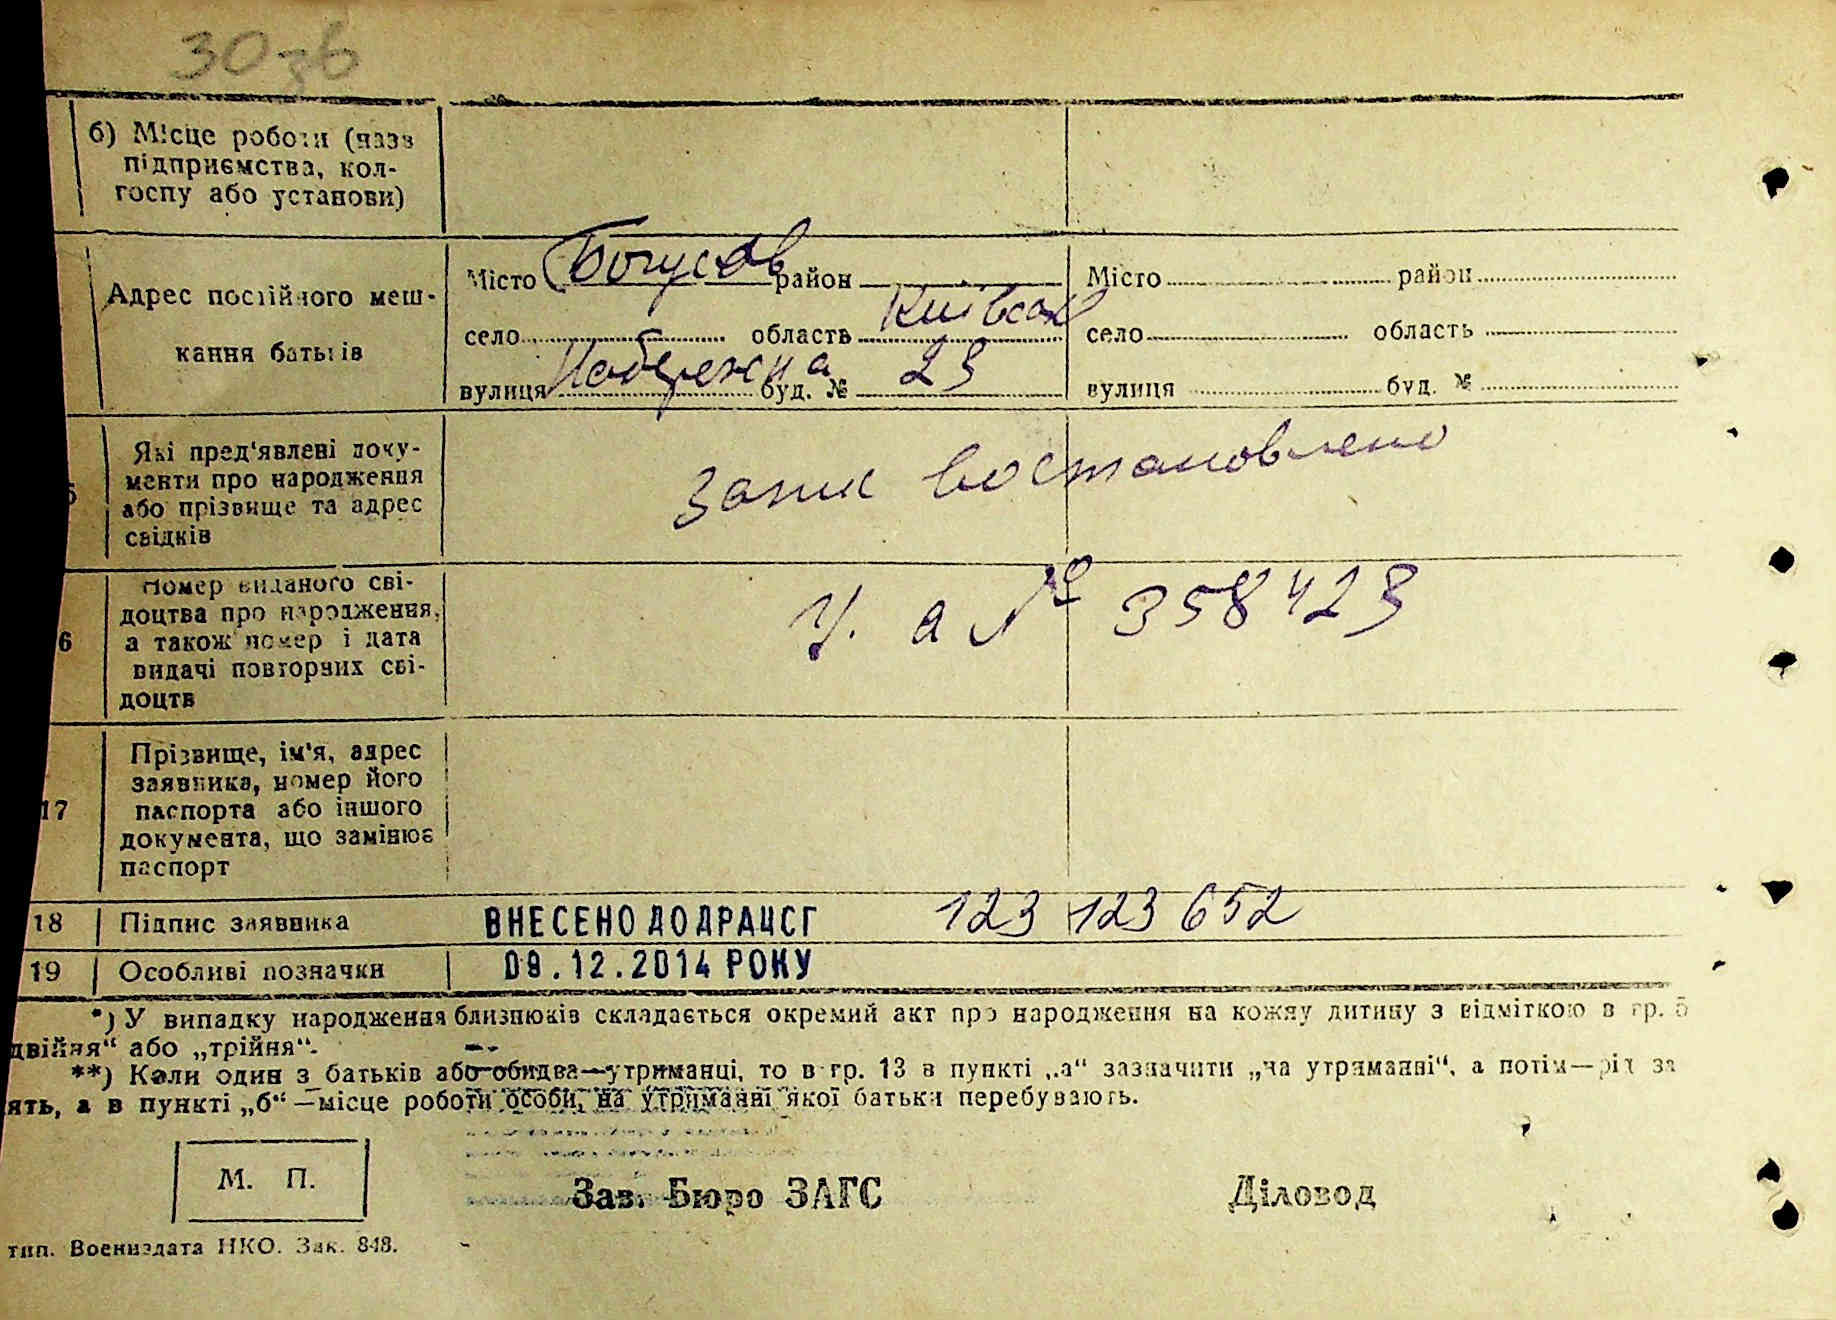 30зв
б) Місце роботи (назв
підприємства, кол-
госпу або установи)
Адрес постійного меш-
кання батьків
Місто Богуслав район
село область Київськ
вулиця Набережна буд. № 23
Місто район
село область
вулиця буд. №
5
Які пред'явлені доку-
менти про народження
або прізвище та адрес
свідків
запис востановлено
6
Номер виданого сві-
доцтва про народження,
а також номер і дата
видачі повторних сві-
доцтв
У. а № 358423
17
Прізвище, ім'я, адрес
заявника, номер його
паспорта або іншого
документа, що замінює
паспорт
18 Підпис заявника ВНЕСЕНО ДО ДРАЦСГ 123 123 652
19 Особливі позначки 09.12.2014 РОКУ
*) У випадку народження близнюків складається окремий акт про народження на кожну дитину з відміткою в гр. 5
двійня“ або „трійня“.
**) Коли один з батьків або обидва—утриманці, то в гр. 13 в пункті „а“ зазначити „на утриманні“, а потім—рід за
ять, а в пункті „б“—місце роботи особи, на утриманні якої батьки перебувають.
М. П.
Зав. Бюро ЗАГС
Діловод
тип. Воениздата НКО. Зак. 848.